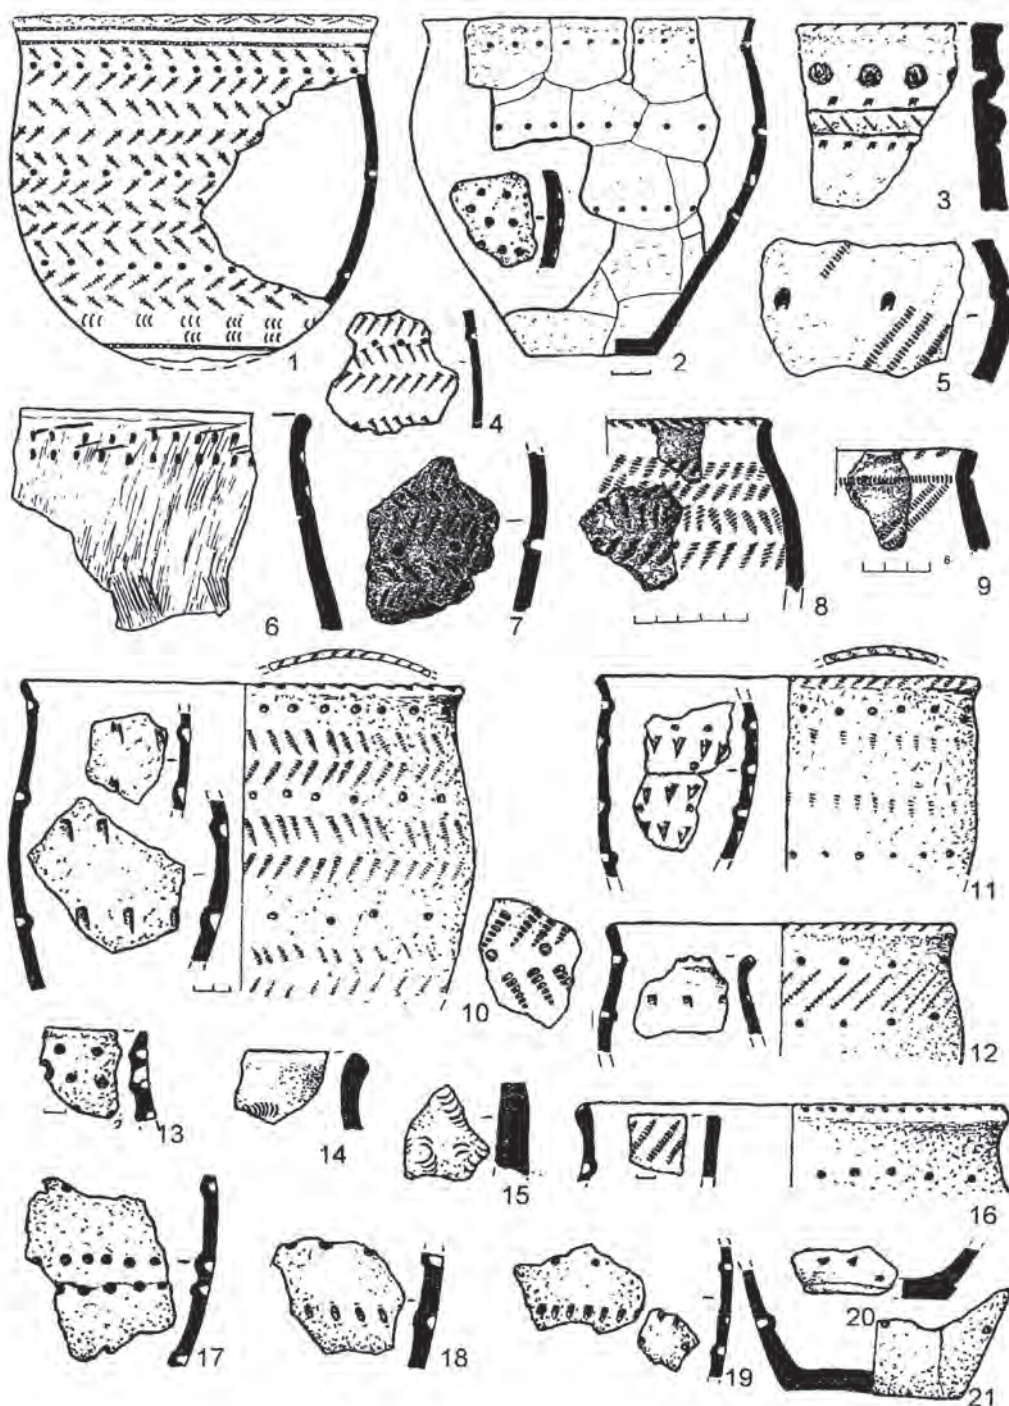 1
2
3
4
5
6
7
8
6
9
10
11
12
13
14
15
16
17
18
19
20
21